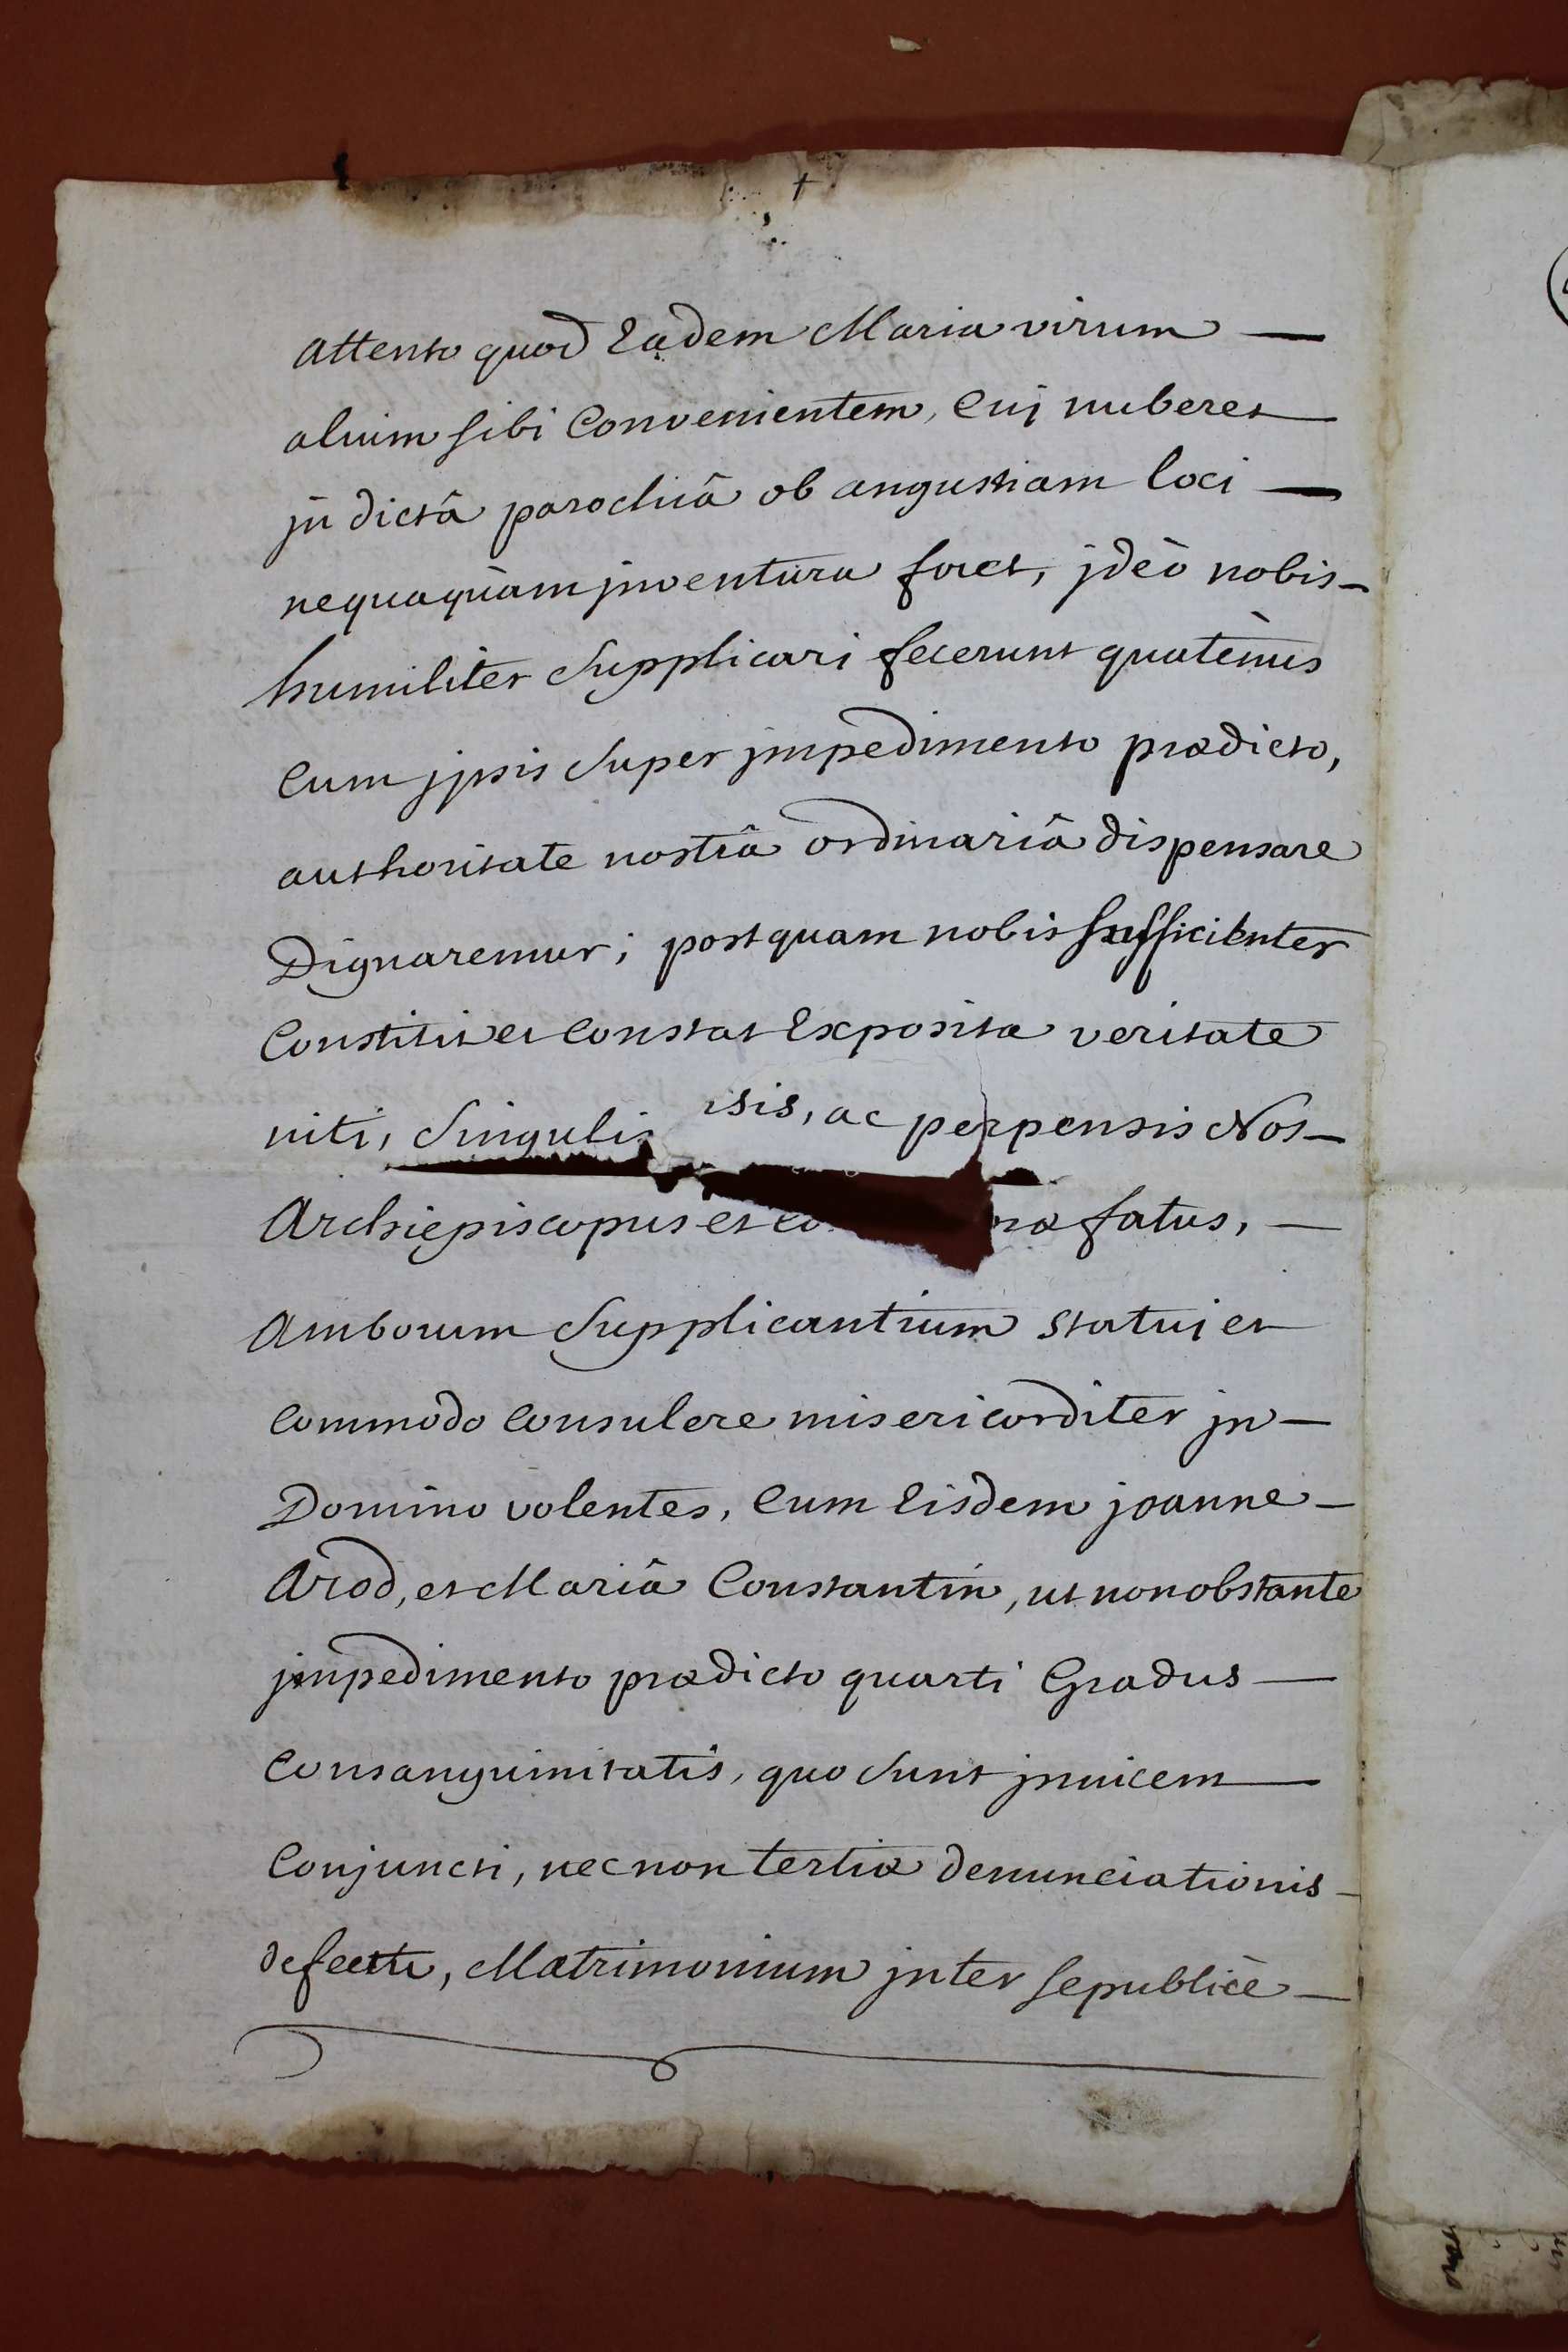 +
attento quod Eadem Maria virum —
alium sibi Convenientem, Cuj nuberet
jn dictâ parochiâ ob angustiam loci —
nequaquàm jnventura foret, jdeò nobis —
humiliter Supplicari fecerunt quatènus
Cum jpsis Super jmpedimento prædicto,
authoritate nostrâ ordinariâ dispensare
Dignaremur; postquam nobis sufficienter
Constitit et Constat Exposita veritate
niti, Singulis isis, ac perpensis Nos —
Archiepiscopus et Co ræfatus, —
Amborum Supplicantium Statuj et
Commodo Consulere misericorditer jn —
Domino volentes, Cum Eisdem joanne —
Arod, et Mariâ Constantin, ut non obstante
jmpedimento prædicto quarti Gradus —
Consanguinitatis, quo Sunt jnuicem —
Conjuncti, necnon tertiæ denunciationis —
defectu, Matrimonium jnter se publicè —